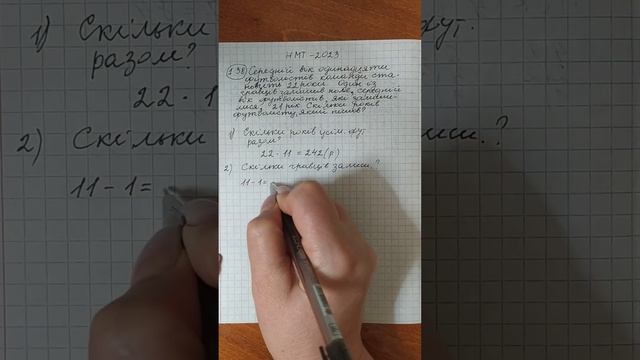 НМТ-2023
1.38 Середній вік одинадцяти
футболістів команди ста-
новить 22 роки. Один із
гравців залишив поле, середній
вік футболістів, які залиши-
лися, 21 рік. Скільки років
футболісту, який пішов?
1) Скільки років усім фут.
разом?
22 · 11 = 242 (р)
2) Скільки гравців залиш.?
11 - 1 =